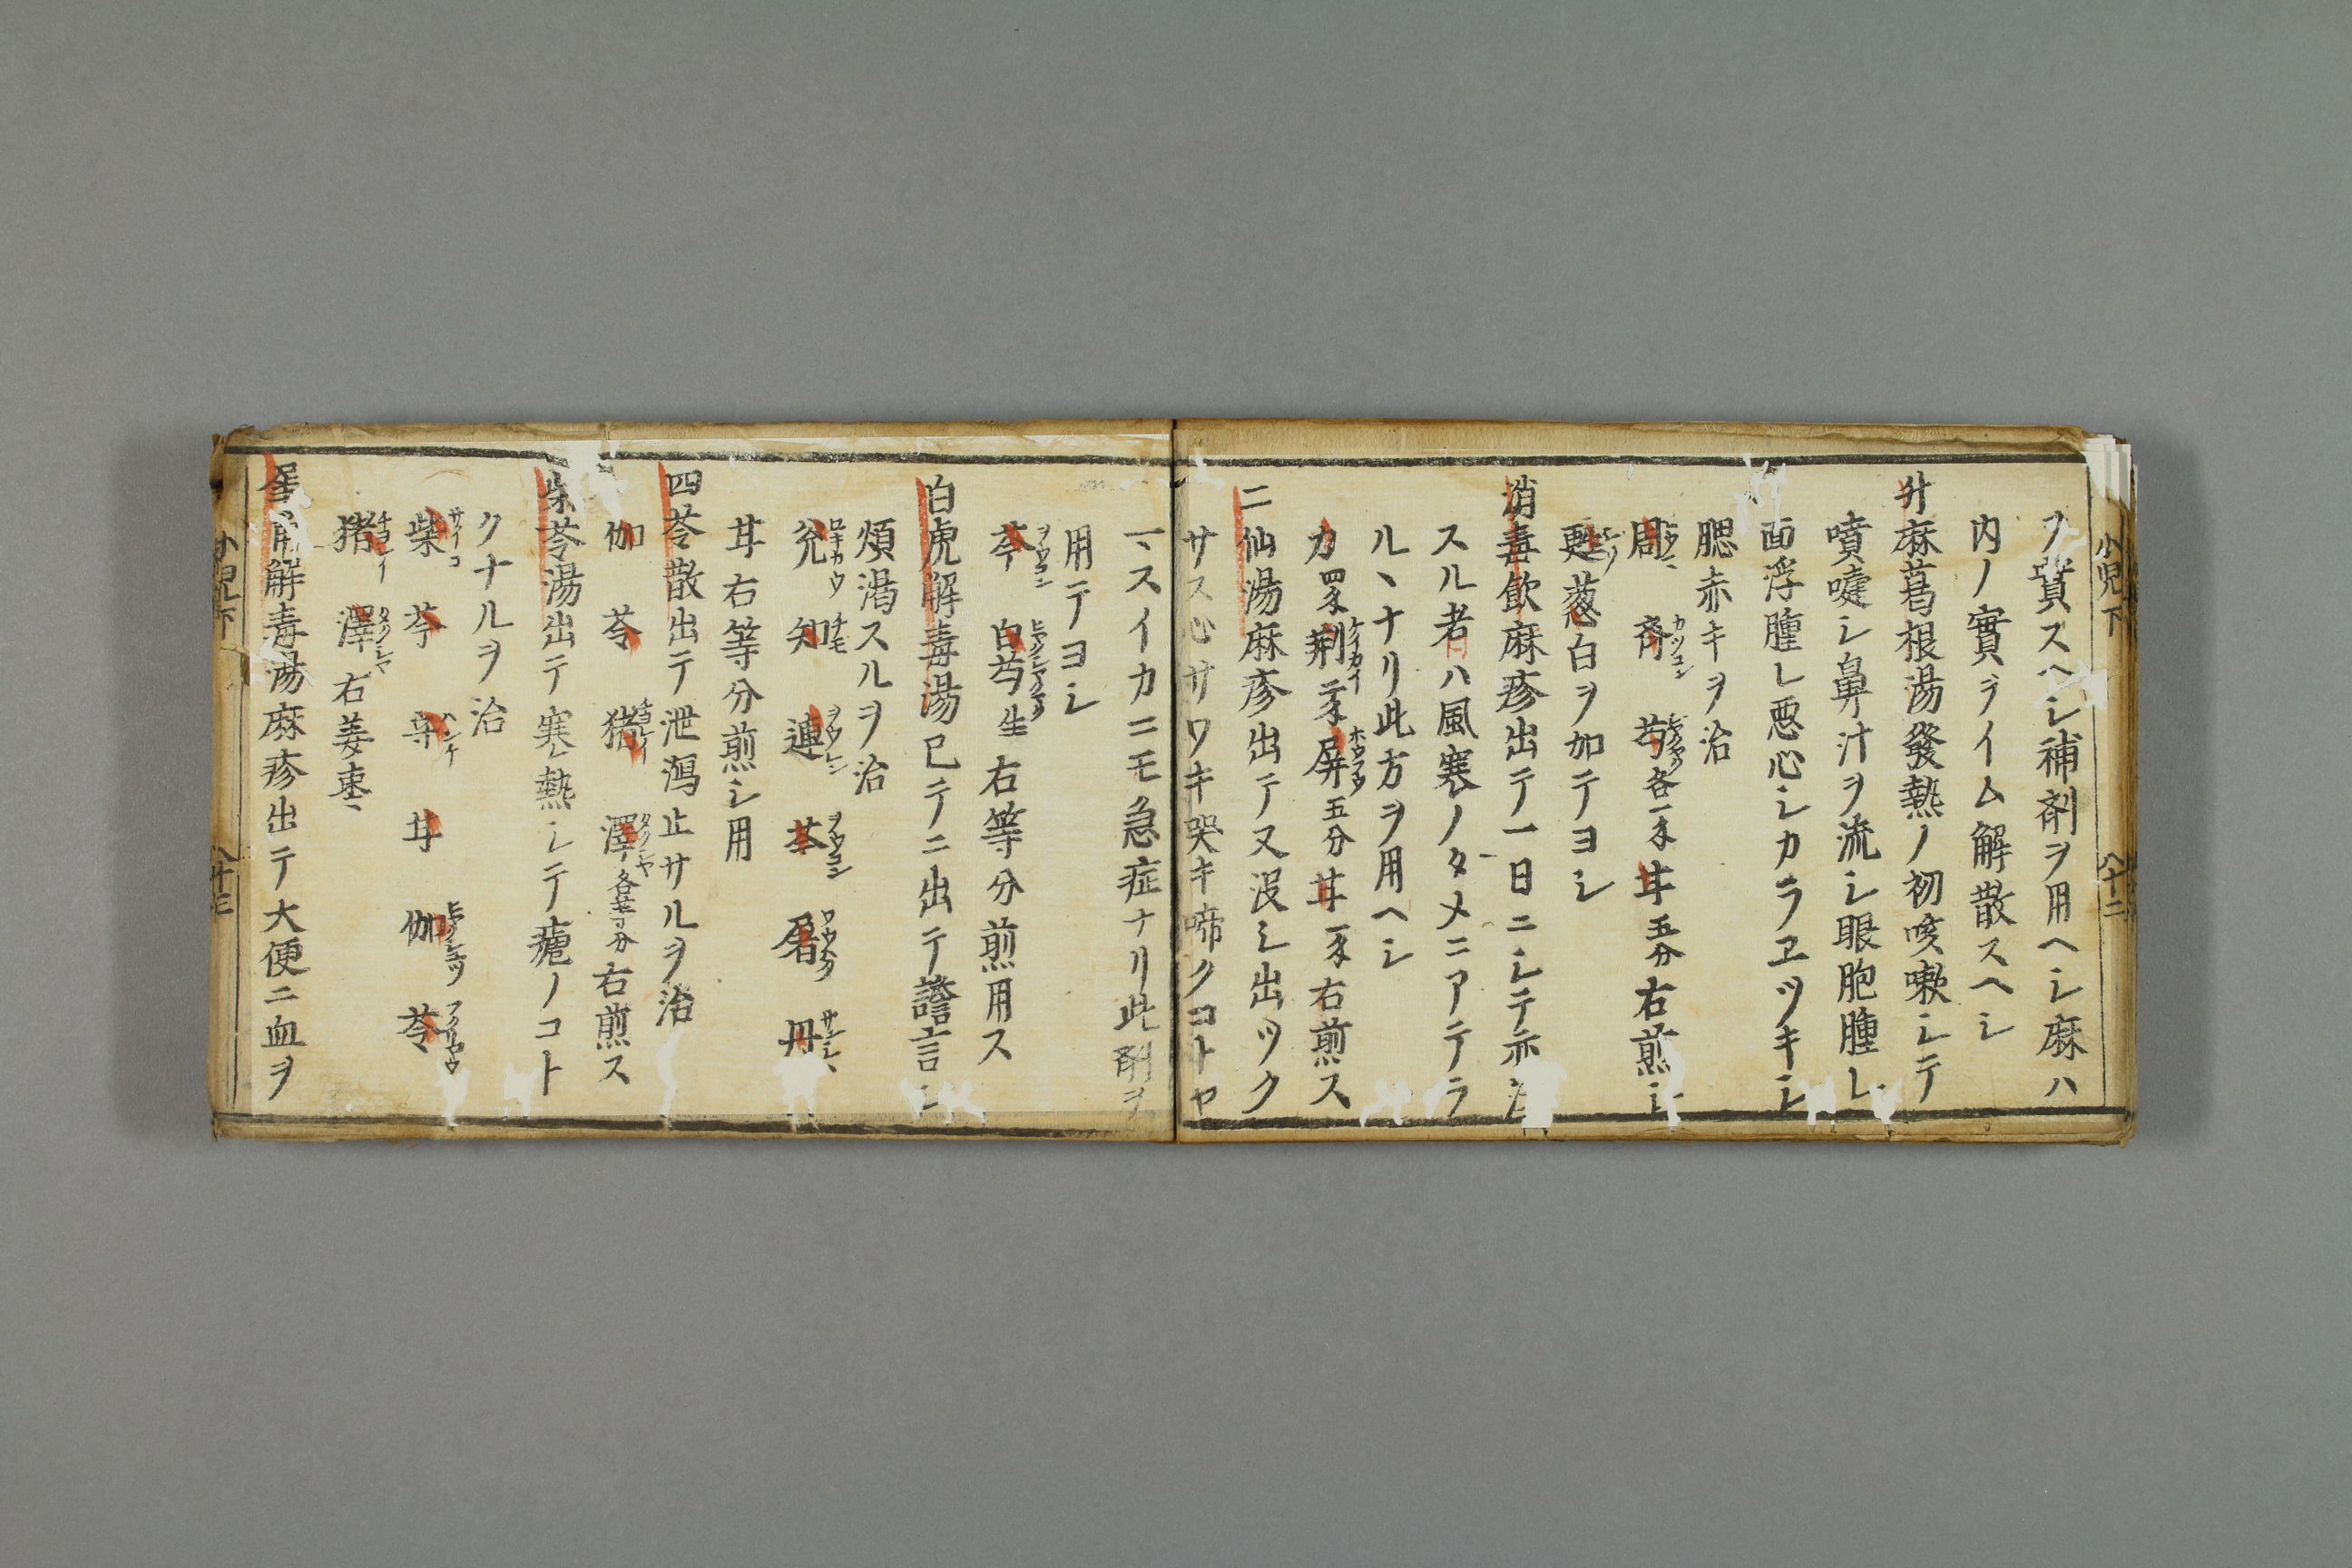 小児下 八十二
ヲ貴スヘシ補剤ヲ用ヘシ麻ハ
内ノ實ヲイム解散スヘシ
升麻葛根湯發熱ノ初咳嗽シテ
噴嚔シ鼻汁ヲ流シ眼胞腫レ
面浮腫レ悪心シカラヱツキシ
腮赤キヲ治
周 斉 芍各一匁 甘五分右煎シ
葱白ヲ加テヨシ
消毒飲麻疹出テ一日ニシテ
スル者ハ風寒ノタメニアテラ
ルヽナリ此方ヲ用ヘシ
力四匁荆二匁屏五分甘一匁右煎ス
二仙湯麻疹出テ又没シ出ツク
サス心サワキ哭キ啼クコトヤ
一ヽスイカニモ急症ナリ此剤ヲ
用テヨシ
芩 白芍生右等分煎用ス
白虎解毒湯已テニ出テ譫言シ
煩渇スルヲ治
知 連 丹
甘右等分煎シ用
四苓散出テ泄瀉止サルヲ治
伽 苓 猪 澤 右煎ス
柴苓湯出テ寒熱シテ瘧ノコト
クナルヲ治
柴サイコ 芩 ハンケ 甘 伽 苓
猪 澤 右姜棗
解毒湯麻疹出テ大便ニ血ヲ
小児下 八十三